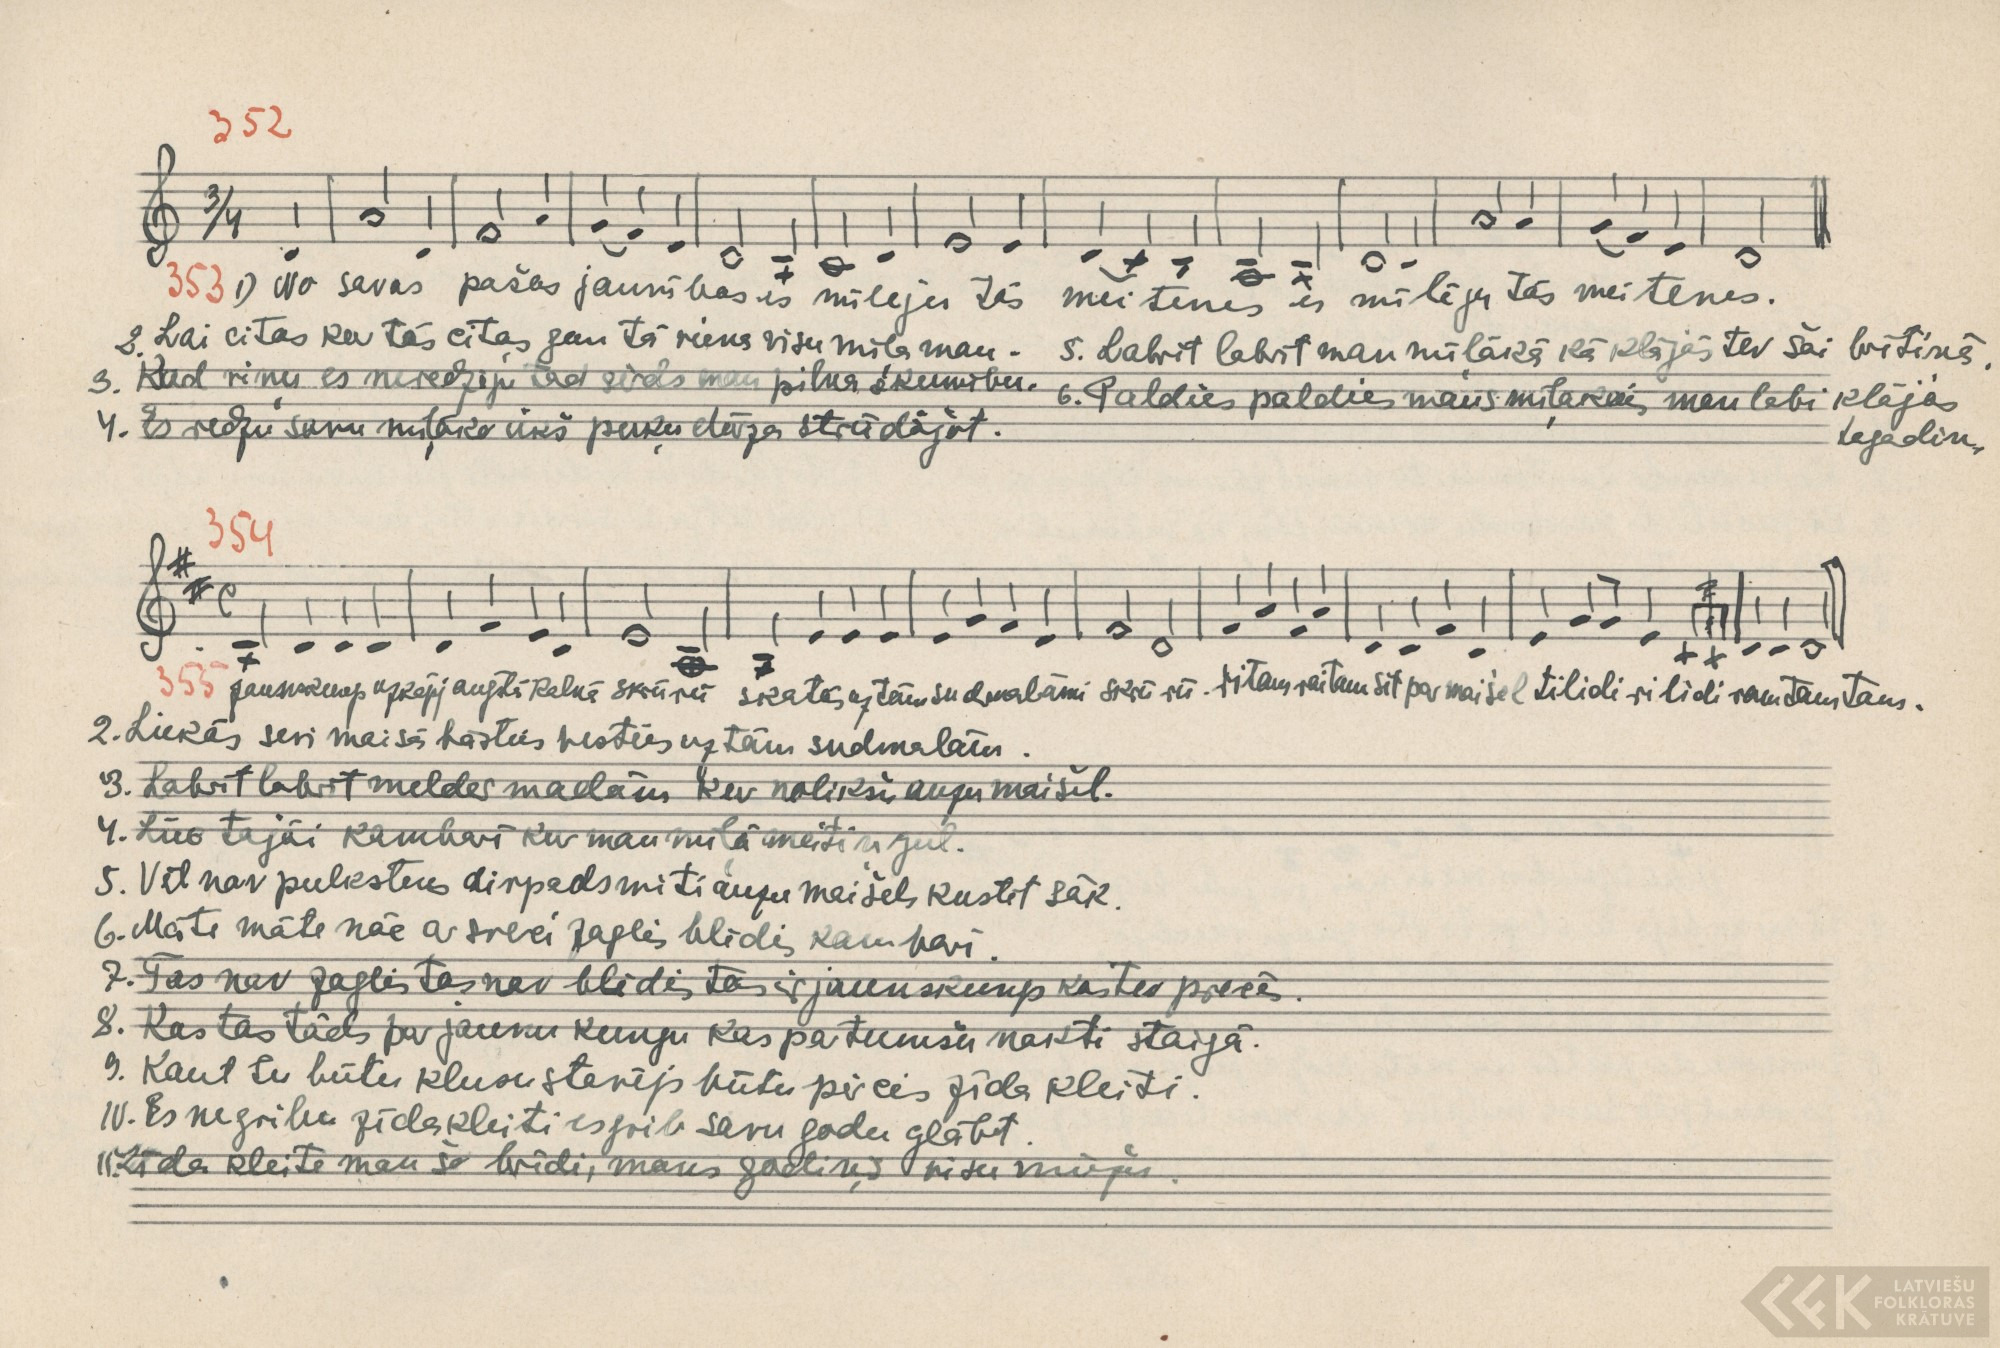 352
3/4
353 1) No savas pašas jaunības es mīlēju tās meitenes es mīlēju tās meitenes.
2. Lai citas kur tās citas gan tā viena visu mīļa man.
3. Kad viņu es neredzēju tad sirds man pilna skumību.
4. Es redzu savu mīļāko iikš puķu dārza strādājot.
5. Labrīt labrīt man mīļākā kā klājās tev šai brītiņā.
6. Paldies paldies mans mīļākais man labi klājās tagadiņ
354
C
355 jaunskungs uzkāpj augstā kalnā skrū rū skatās uz tām sudmalāmi skrū rū. ritam raitam sit par maišel tilidi ri lidi ram tam tam.
2. Liekās sevi maisā bāsties nesties uz tām sudmalām.
3. Labrīt labrīt melder madām kur nolikšu auzu maišel.
4. Liec tajāi kambarī kur man mīļā meitiņ guļ.
5. Vēl nav pulkstens divpadsmiti auzu maišels kustēt sāk.
6. Māte māte nāc ar sveci zaglis blēdis kambarī.
7. Tas nav zaglis tas nav blēdis tas ir jaunskungs kas tev precēs.
8. Kas tas tāds par jaunu kungu kas pa tumšu nakti staigā.
9. Kaut tu būtu klusu stāvējs būtu pircis zīda kleiti.
10. Es negribu zīda kleiti es grib savu godu glābt.
11. Zīda kleite man šo brīdi, mans godiņš visu mūžu.
LATVIEŠU
FOLKLORAS
KRĀTUVE